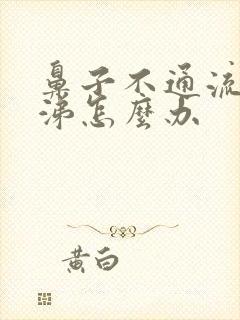 鼻子不通流
涕怎麼办
黄白